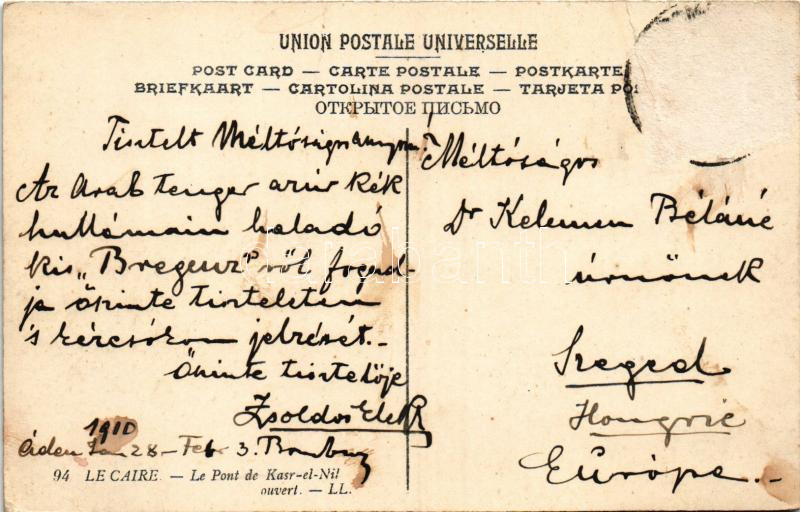 UNION POSTALE UNIVERSELLE
POST CARD — CARTE POSTALE — POSTKARTE
BRIEFKAART — CARTOLINA POSTALE — TARJETA PO
ОТКРЫТОЕ ПИСЬМО
Tisztelt Méltóságos
Az Arab tenger azúr kék
hullámain haladó
kis „Bregenz"ről fogad-
ja őszinte tiszteletem
s kézcsókom jelzését.-
Őszinte tisztelője
Zsoldos Elek
1910
Áden Jan 28 - Feb 3. Bombay
94 LE CAIRE. — Le Pont de Kasr-el-Nil
ouvert. — LL.
Méltóságos
Dr Kelemen Béláné
úrnőnek
Szeged
Hongrie
Európa.-
darabanth